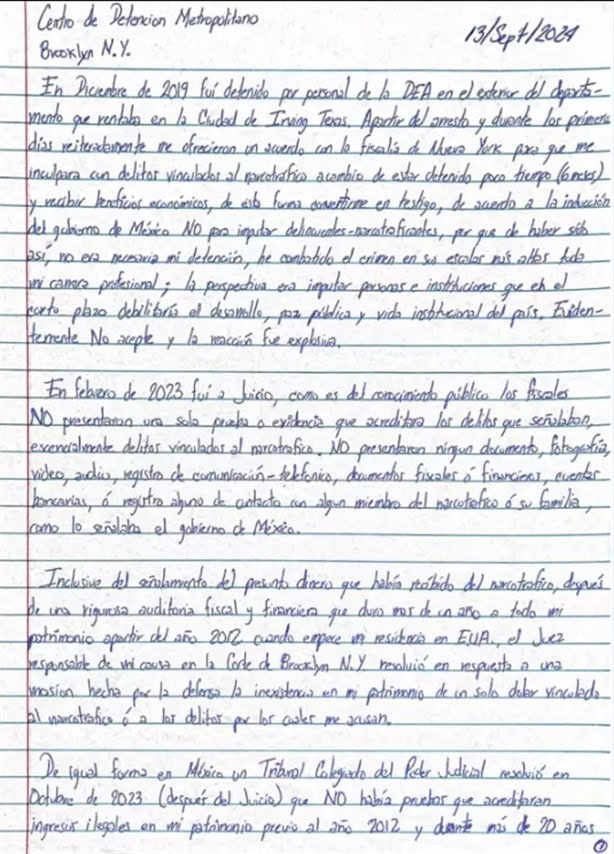 Centro de Detencion Metropolitano
13/Sept/2024
Brooklyn N.Y.
En Diciembre de 2019 fuí detenido por personal de la DEA en el exterior del departa-
mento que rentaba en la Ciudad de Irving Texas. Apartir del arresto y durante los primeros
días reiteradamente me ofrecieron un acuerdo con la fiscalía de Nueva York para que me
inculpara con delitos vinculados al narcotráfico acambio de estar detenido poco tiempo (6 meses)
y recibir beneficios económicos, de ésta forma convertirme en testigo, de acuerdo a la inducción
del gobierno de México NO para imputar delincuentes-narcotraficantes, por que de haber sido
así, no era necesaria mi detención, he combatido el crimen en sus escalas más altas toda
mi carrera profesional; la perspectiva era imputar personas e instituciones que en el
corto plazo debilitaría el desarrollo, paz pública y vida institucional del país. Eviden-
temente No acepte y la reacción fue explosiva.
En febrero de 2023 fuí a Juicio, como es del conocimiento público los fiscales
NO presentaron una sola prueba o evidencia que acreditara los delitos que señalaban,
escencialmente delitos vinculados al narcotrafico. NO presentaron ningun documento, fotografía,
video, audio, registro de comunicación-telefonico, documentos fiscales ó financieros, cuentas
bancarias, ó registro alguno de contacto con algun miembro del narcotrafico ó su familia,
como lo señalaba el gobierno de México.
Inclusive del señalamiento del presunto dinero que había recibido del narcotrafico, después
de una rigurosa auditoria fiscal y financiera que duro mas de un año a todo mi
patrimonio apartir del año 2012 cuando empece mi residencia en EUA., el Juez
responsable de mi causa en la Corte de Brooklyn N.Y resolvió en respuesta a una
mosion hecha por la defensa la inexistencia en mi patrimonio de un solo dolar vinculado
al narcotrafico ó a los delitos por los cuales me acusan.
De igual forma en México un Tribunal Colegiado del Poder Judicial resolvió en
Octubre de 2023 (después del Juicio) que NO había pruebas que acreditaran
ingresos ilegales en mi patrimonio previo al año 2012 y durante más de 20 años
1